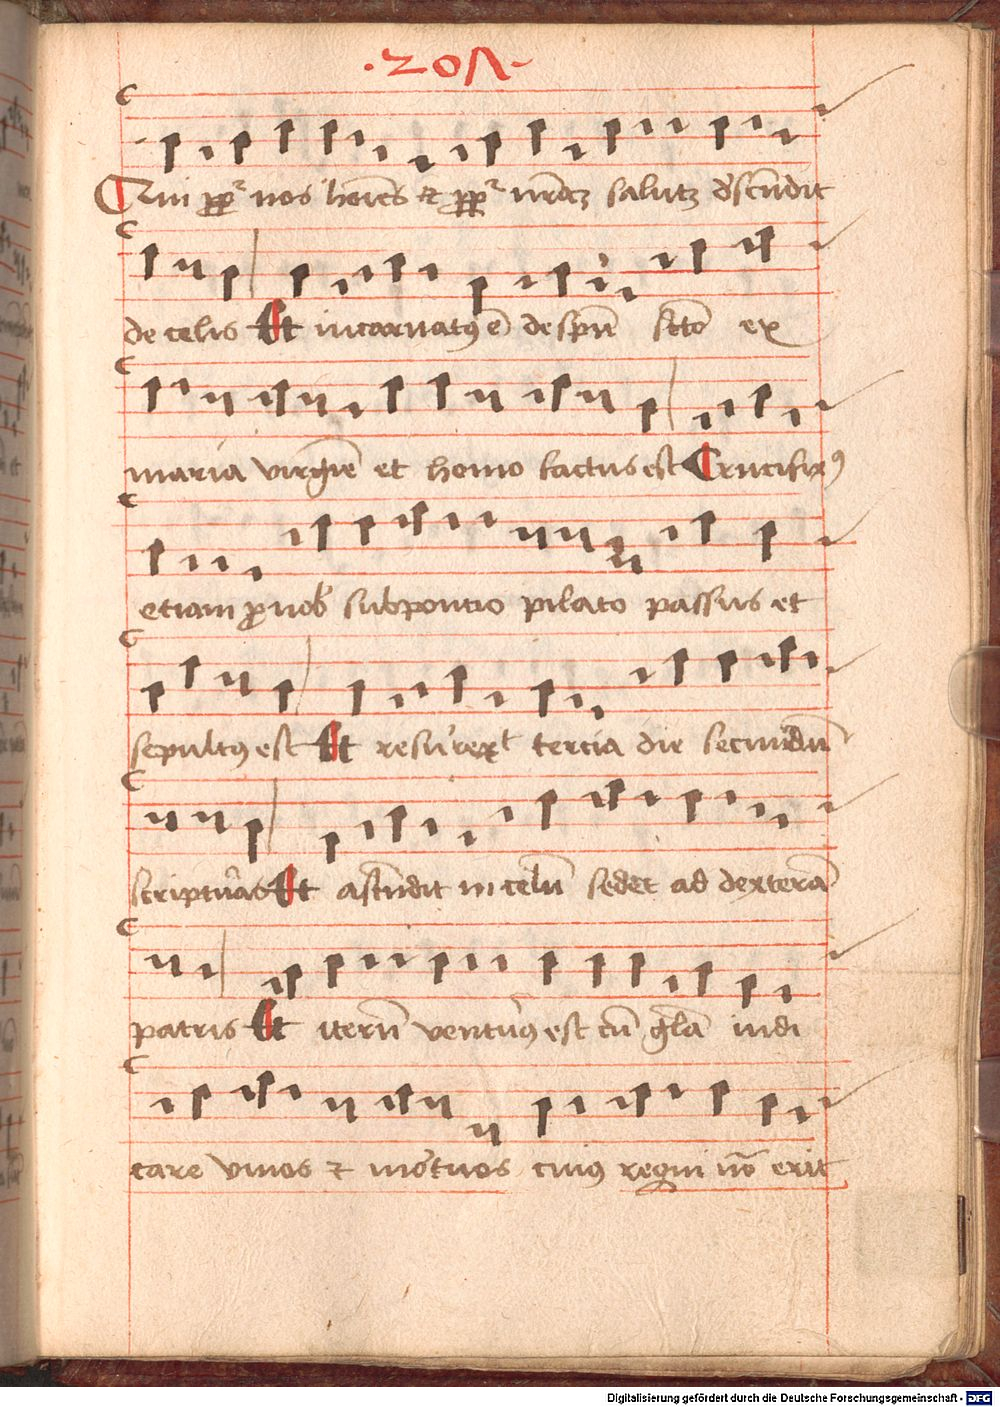 ·207·
Qui pp̄ nos hoīes ⁊ pp̄ nr̄āꝫ salutꝫ descēndit
de celis Et incarnatꝯ ē de spū sctō ex
maria virgīe et homo factus est Crucifixꝯ
etiam ꝓ nob̄ sub pontio pilato passus et
sepultꝯ est Et resurrexͭ tercia die secundū
scripturas Et ascendit in celū sedet ad dexterā
patris Et iterū venturꝯ est cū glā iudi
care vivos ⁊ mortuos cuiꝯ regni nō erit
Digitalisierung gefördert durch die Deutsche Forschungsgemeinschaft - DFG